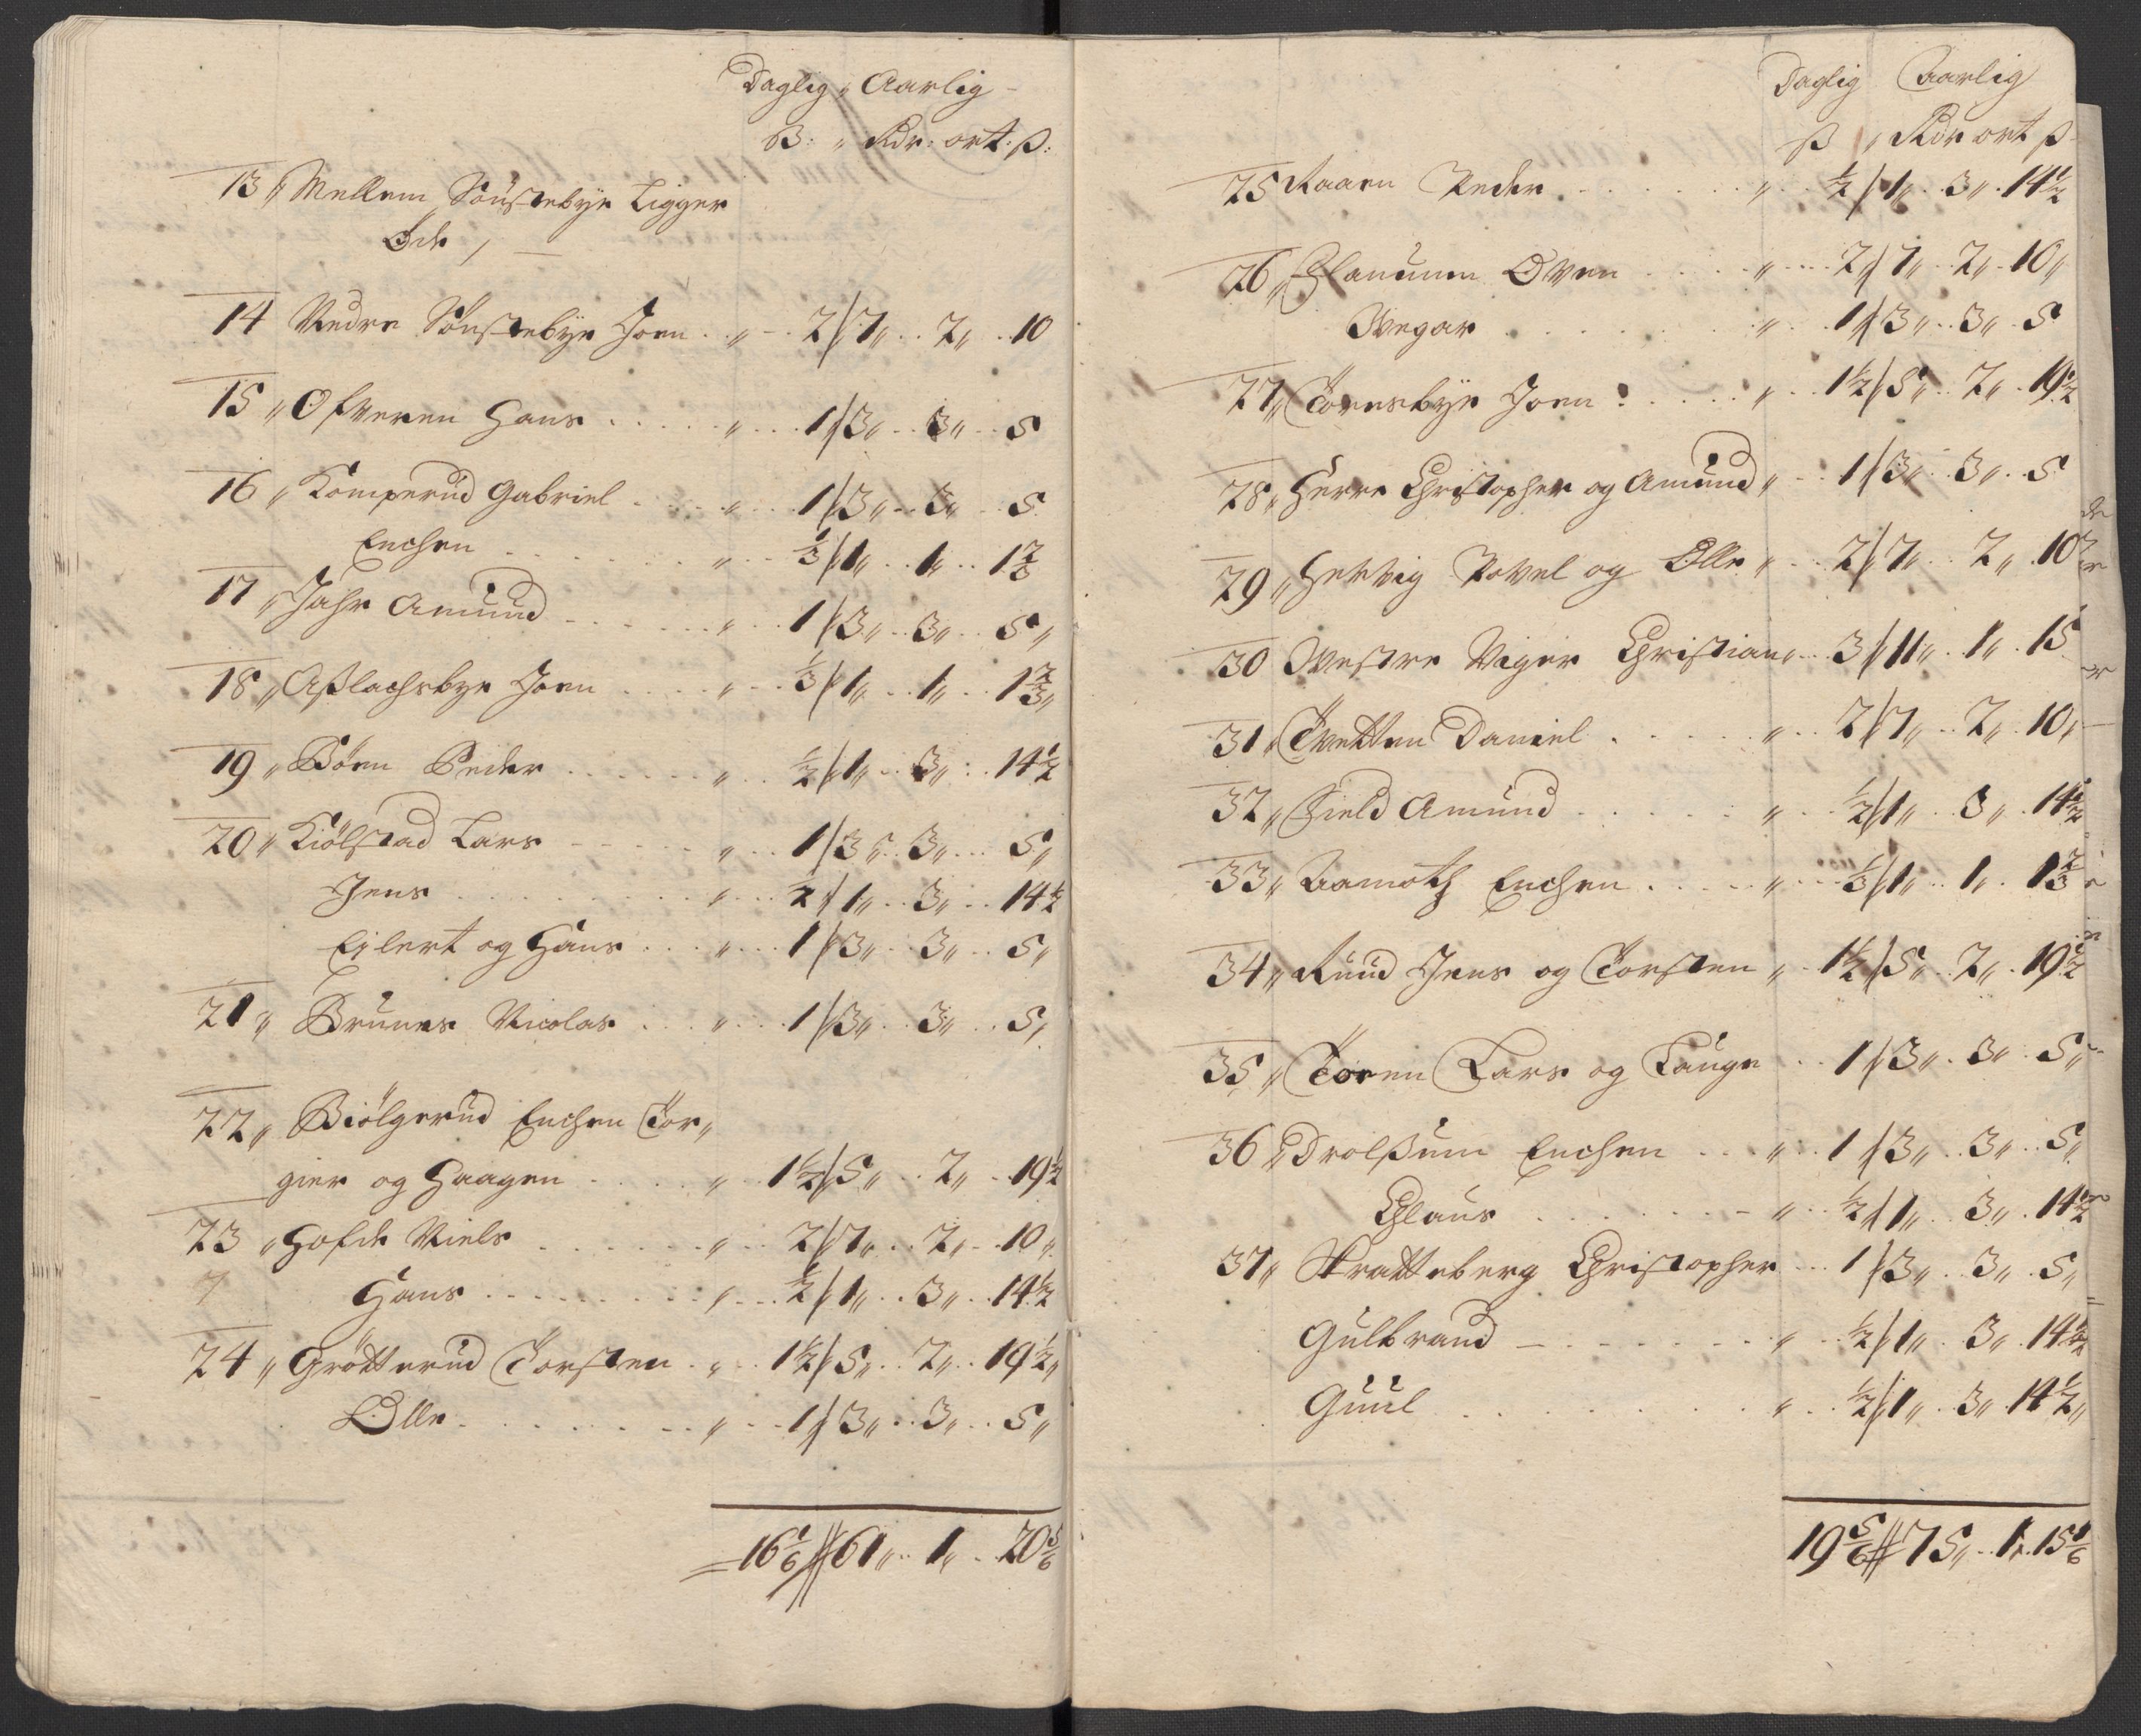 Daglig „ Aarlig
ß: „ Rdr: ort: ß:
13 „ Mellem Sönstebye Ligger
Öde /
14 Nedre Sönstebye Joen „ 2 / 7 „ 2 „ 10
15 „ Ofveren Hans „ 1 / 3 „ 3 „ 5
16 „ Komperud Gabriel „ 1 / 3 „ 3 „ 5
Enchen „ 1/3 / 1 „ 1 „ 1 2/3
17 „ Jahr Amund „ 1 / 3 „ 3 „ 5 „
18 „ Aßlachsbye Joen „ 1/3 / 1 „ 1 „ 1 2/3 „
19 „ Böen Peder „ 1/2 / 1 „ 3 „ 14 1/2
20 „ Kiölstad Lars „ 1 / 3 „ 3 „ 5 „
Jens „ 1/2 / 1 „ 3 „ 14 1/2
Eilert og Hans „ 1 / 3 „ 3 „ 5 „
21 „ Brunes Nicolas „ 1 / 3 „ 3 „ 5 „
22 „ Biölgerud Enchen Tor„
gier og Haagen „ 1 1/2 / 5 „ 2 „ 19 1/2
23 „ Hofde Niels „ 2 / 7 „ 2 „ 10 „
Hans „ 1/2 / 1 „ 3 „ 14 1/2
24 „ Grötterud Torsten „ 1 1/2 / 5 „ 2 „ 19 1/2 „
Olle „ 1 / 3 „ 3 „ 5 „
= 16 1/6 // 61 „ 1 „ 20 5/6
Daglig Aarlig
ß „ Rdr ort ß
25 Raaen Peder „ 1/2 / 1 „ 3 „ 14 1/2
26 „ Glanum Oven „ 2 / 7 „ 2 „ 10 „
Vegar „ 1 / 3 „ 3 „ 5
27 „ Toresbye Joen „ 1 1/2 / 5 „ 2 „ 19 1/2
28 „ Herre Christopher og Amund „ 1 / 3 „ 3 „ 5
29 „ Hervig Povel og Olle „ 2 / 7 „ 2 „ 10
30 Vestre Viger Christian „ 3 / 11 „ 1 „ 15
31 „ Tvetten Daniel „ 2 / 7 „ 2 „ 10 „
32 „ Field Amund „ 1/2 / 1 „ 3 „ 14 1/2
33 „ Aamoth Enchen „ 1/3 / 1 „ 1 „ 1 2/3
34 „ Ruud Jens og Torsten „ 1 1/2 / 5 „ 2 „ 19 1/2
35 „ Toren Lars og Tauge 1 / 3 „ 3 „ 5 „
36 „ Drolßum Enchen „ 1 / 3 „ 3 „ 5 „
Claus „ 1/2 / 1 „ 3 „ 14 1/2
37 „ Skratteberg Christopher 1 / 3 „ 3 „ 5 „
Gulbrand „ 1/2 / 1 „ 3 „ 14 1/2
Guul „ 1/2 / 1 „ 3 „ 14 1/2 „
19 5/6 // 75 „ 1 „ 15 1/6